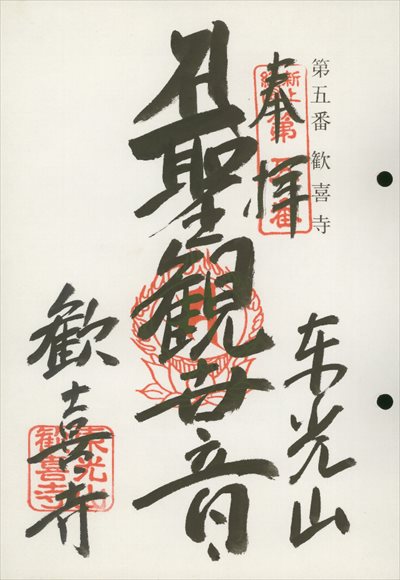 第五番 歓喜寺
奉拝
新上
第五番
東光山
聖観世音
歓喜寺
東光山
歓喜寺